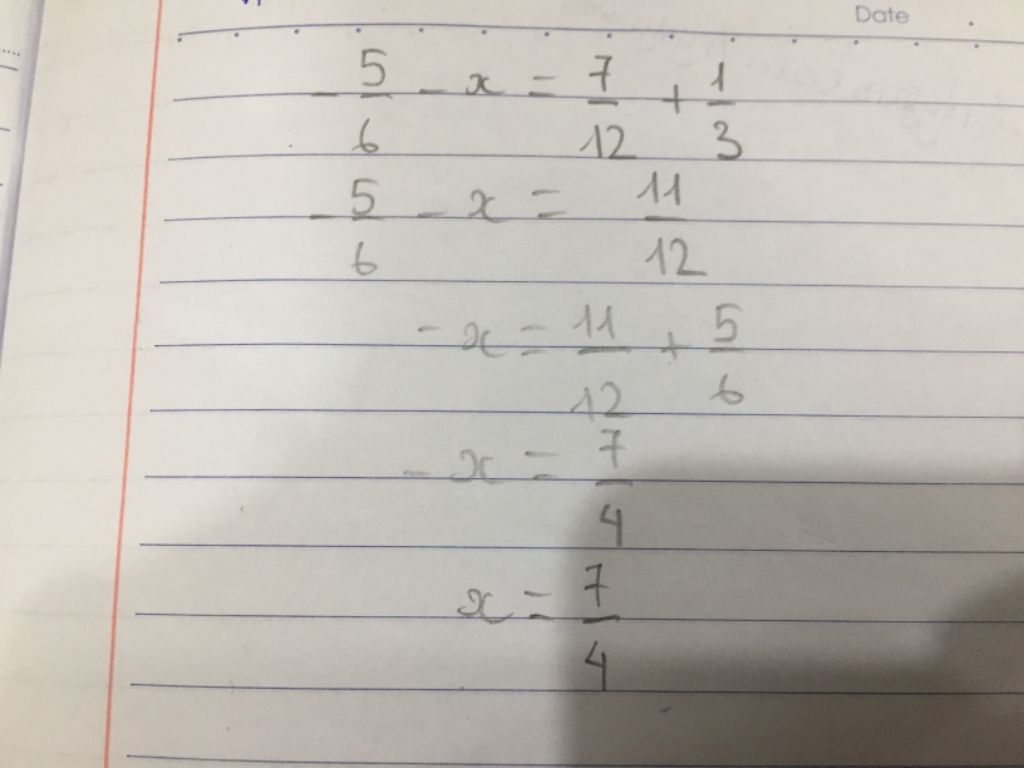 Date
- 5/6 - x = 7/12 + 1/3
- 5/6 - x = 11/12
- x = 11/12 + 5/6
- x = 7/4
x = 7/4